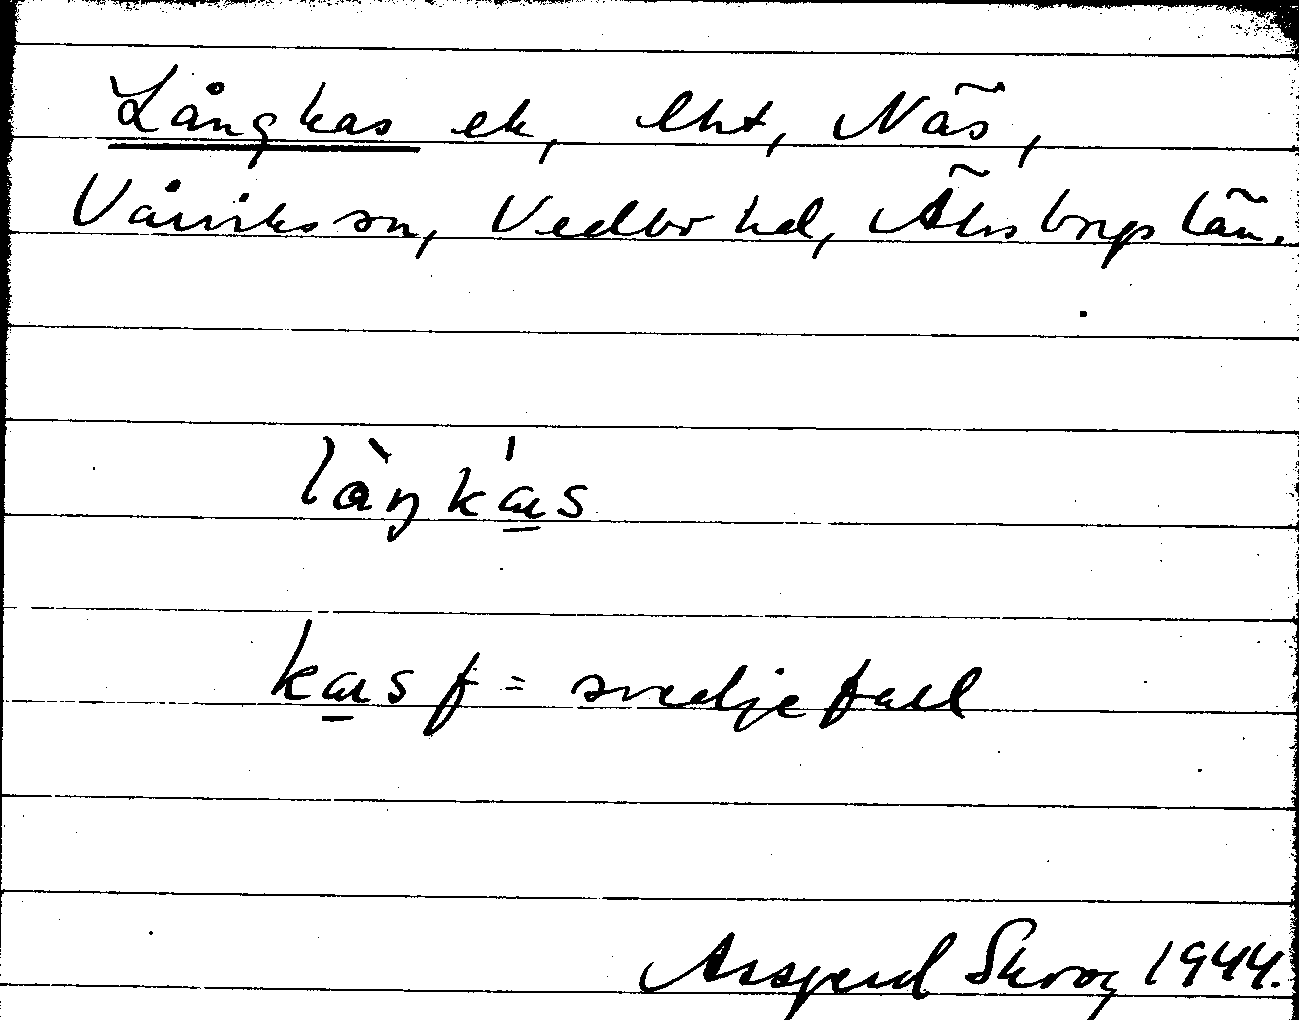 Långkas ek, lht, Näs,
Vårviks sn, Vedbo hd, Älvsborgs län.
làŋkás
kas f = svedjefall
Skrog 1944.